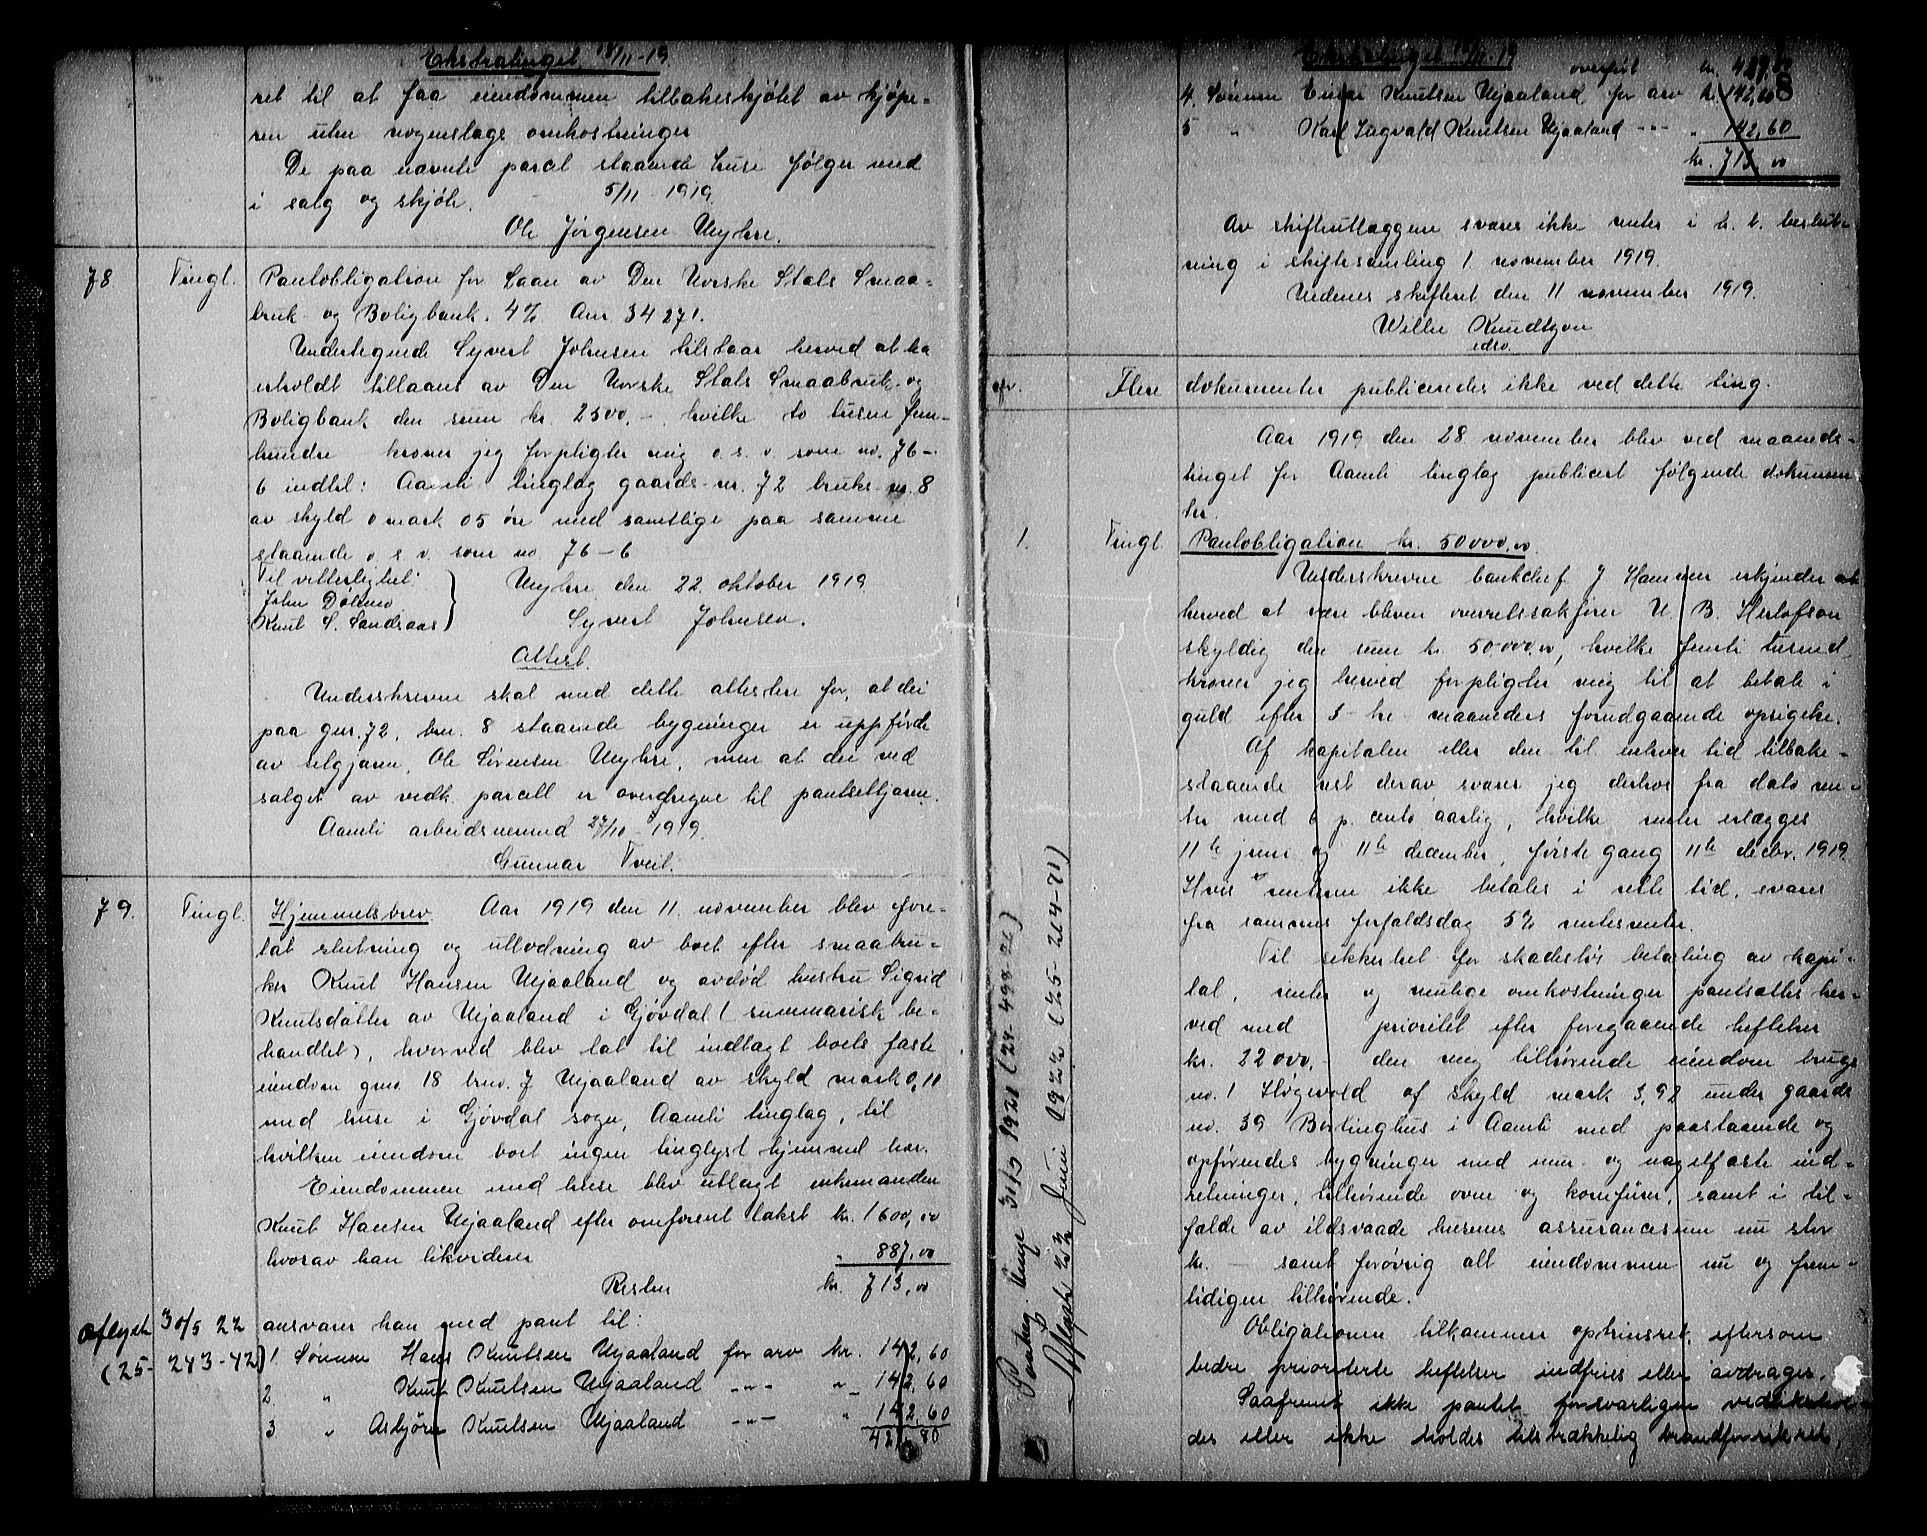 Ekstratinget 18/11-19
ret til at faa eiendommen tilbakeskjøtet av kjøpe-
ren uten nogenslags omkostninger
De paa nævnte parcel staaende huse følger med
i salg og skjøte. 5/11 - 1919.
Ole Jørgensen Ueybre.
78 Tingl. Pantobligation for Laan av Den Norske Stats Smaa-
bruk- og Boligbank. 4% Anr. 34271.
Undertegnede Syvert Johnsen tilstaar herved at ha
erholdt tillaans av Den Norske Stats Smaabruk- og
Boligbank den sum kr. 2500.- hvilke to tusen fem-
hundre kroner jeg forpligter mig o. s. v. som no. 76 -
6 indtil: Aamli tinglag gaards-nr. 72 bruks-nr. 8
av skyld 0 mark 05 øre med samtlige paa samme
staaende o. s. v. som no 76-6
Til vitterlighet:
John Dölemo
Knut S. Sandraas
den 22. oktober 1919.
Syvert Johnsen.
Attest.
Underskrevne skal med dette attestere for, at dei
paa gnr. 72, bnr. 8 staaende bygninger er uppförde
av selgjaren, Ole Sörensen men at dei ved
salget av vedk. parcell er overdregne til pantsettjaren.
Aamli arbeidsnemnd 27/10 - 1919.
Gunnar Tveit.
79. Tingl. Hjemmelsbrev. Aar 1919 den 11. november blev fore-
tat slutning og utlodning av boet efter smaabru-
ker Knut Hansen Mjaaland og avdød hustru Sigrid
Knutsdatter av Mjaaland i Gjøvdal (summarisk be-
handlet), hvorved blev tat til indtægt boets faste
eiendom gno. 18 bno. 7 Mjaaland av skyld mark 0,11
med huse i Gjøvdal sogn, Aamli tinglag, til
hvilken eiendom boet ingen tinglyst hjemmel har.
Eiendommen med huse blev utlagt enkemanden
Knut Hansen Mjaaland efter omforent takst kr. 1600,00
hvorav han likviderer " 887,00
Resten kr. 713,00
Aflyst 30/5 22 ansvarer han med pant til:
(25- 243-42) 1. Sønnen Hans Knutsen Mjaaland for arv kr. 142,60
2 " Knut Knutsen Mjaaland -"- " 142,60
3 " Asbjörn Knutsen Mjaaland -"- " 142,60
427,80
Ekstratinget 18/11-19
8
overført kr. 427,80
4. Sønnen Einar Knutsen Mjaaland for arv kr. 142,60
5 " Karl Ingvald Knutsen Mjaaland -"- " 142,60
kr. 713,00
Av skifteutlæggene svares ikke renter i h. t. beslut-
ning i skiftesamling 1. november 1919.
Nedenes skifteret den 11 november 1919.
Wille Knudtzon
edsv.
Flere dokumenter publicendes ikke ved dette ting.
Aar 1919 den 28 november blev ved maaneds-
tinget for Aamli tinglag publicert følgende dokumen
ter.
1. Tingl. Pantobligation kr. 50000,00.
Underskrevne bankchef J Hansen erkjender
herved at være bleven overretssakfører N. B. Herlofson
skyldig den sum kr. 50000,00, hvilke femti tusind
kroner jeg herved forpligter mig til at betale i
guld efter 3- tre- maaneders forudgaaende opsigelse.
Af kapitalen eller den til enhver tid tilbake-
staaende rest derav svarer jeg derhos fra dato ren-
ter med 6 p. cento aarlig, hvilke renter erlægges
11te juni og 11te december, første gang 11te decbr. 1919.
Hvis renterne ikke betales i rette tid, svares
fra sammes forfaldsdag 5% rentesrenter.
Til sikkerhet for skadesløs betaling av kapi-
tal, renter og mulige omkostninger pantsættes her-
ved med prioritet efter foregaaende heftelser
kr. 22000,- den mig tilhørende eiendom brugs
no. 1 Høgevold af skyld mark 3,92 under gaards
no. 39 Bertinghus i Aamli med paastaaende og
opførendes bygninger med mur- og nagelfaste ind-
retninger, tilhørende ovne og komfürer, samt i til-
fælde av ildsvaade husenes assurancesum nu stor
kr. - samt forøvrig alt eiendommen nu og frem-
tidigen tilhørende.
Obligationen tilkommer oprinsret, eftersom
bedre prioriterte heftelser indfries eller avdrages.
Saafremt ikke pantet forsvarligen vedlikehol-
des eller ikke holdes tilstrækkelig brandforsikret,
31/5 1921 (24-498-26)
Aflyst 23/ Juni 1922 (25-264-71)